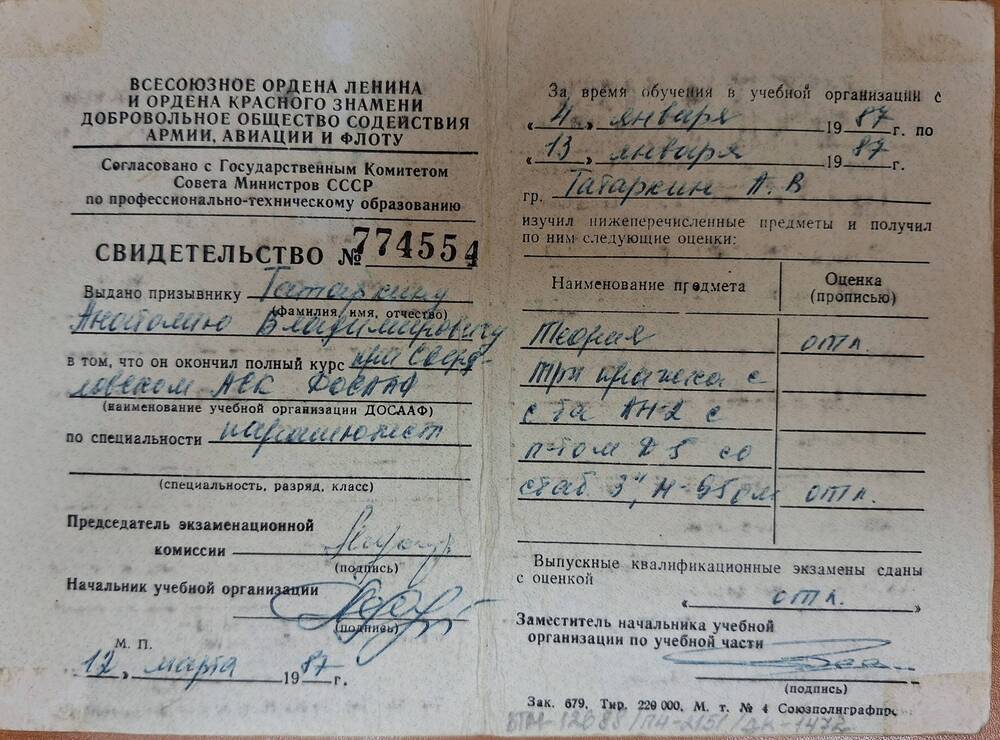 ВСЕСОЮЗНОЕ ОРДЕНА ЛЕНИНА
И ОРДЕНА КРАСНОГО ЗНАМЕНИ
ДОБРОВОЛЬНОЕ ОБЩЕСТВО СОДЕЙСТВИЯ
АРМИИ, АВИАЦИИ И ФЛОТУ
Согласовано с Государственным Комитетом
Совета Министров СССР
по профессионально-техническому образованию
СВИДЕТЕЛЬСТВО № 774554
Выдано призывнику Татаркину
(фамилия, имя, отчество)
Анатолию Владимировичу
в том, что он окончил полный курс при Сверд-
ловском АСК ДОСААФ
(наименование учебной организации ДОСААФ)
по специальности парашютист
(специальность, разряд, класс)
Председатель экзаменационной
комиссии
(подпись)
Начальник учебной организации
(подпись)
М. П.
12 „ марта 1987 г.
За время обучения в учебной организации с
« 4 » января 1987 г. по
« 13 » января 1987 г.
гр. Татаркин А. В
изучил нижеперечисленные предметы и получил
по ним следующие оценки:
Наименование предмета Оценка
(прописью)
Теория отл.
три прыжка с
с та АН-2 с
п-том Д 5 со
стаб 3", Н-950м отл.
Выпускные квалификационные экзамены сданы
с оценкой
« отл. »
Заместитель начальника учебной
организации по учебной части
(подпись)
Зак. 679, Тир. 220 000, М. т. № 4 Союзполиграфпро
12688/ПИ-2151/